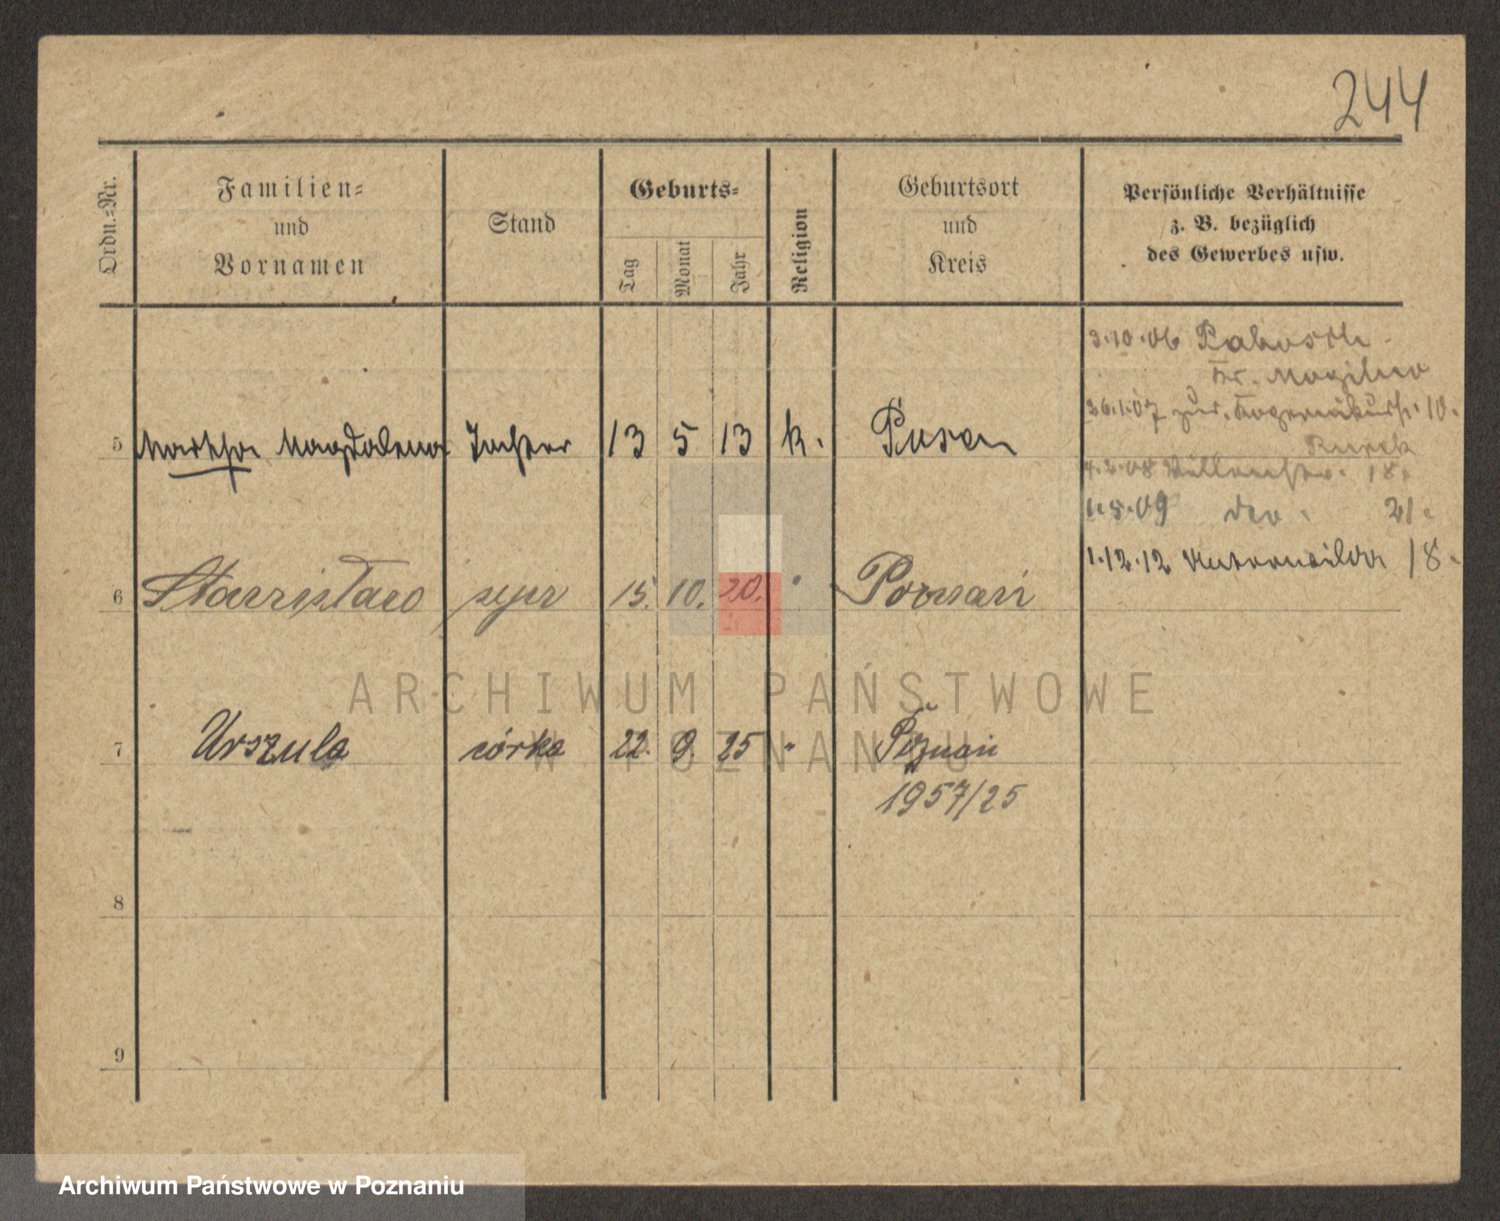 244
Ordn.-Nr.
Familien-
und
Vornamen
Stand
Geburts-
Tag
Monat
Jahr
Religion
Geburtsort
und
Kreis
Persönliche Verhältnisse
z. B. bezüglich
des Gewerbes usw.
3.10.06 Pakosch
Kr. Mogilno
26.1.07 zur. 10.
5 Martha Magdalena Tochter 13 5 13 k. Posen
4.2.08 18.
1.5.09 21.
1.12.12 18.
6 Stanisław syn 15. 10. 20. " Poznań
7 Urszula córka 22. 9. 25 " Poznań
1957/25
8
9
ARCHIWUM PAŃSTWOWE
W POZNANIU
Archiwum Państwowe w Poznaniu